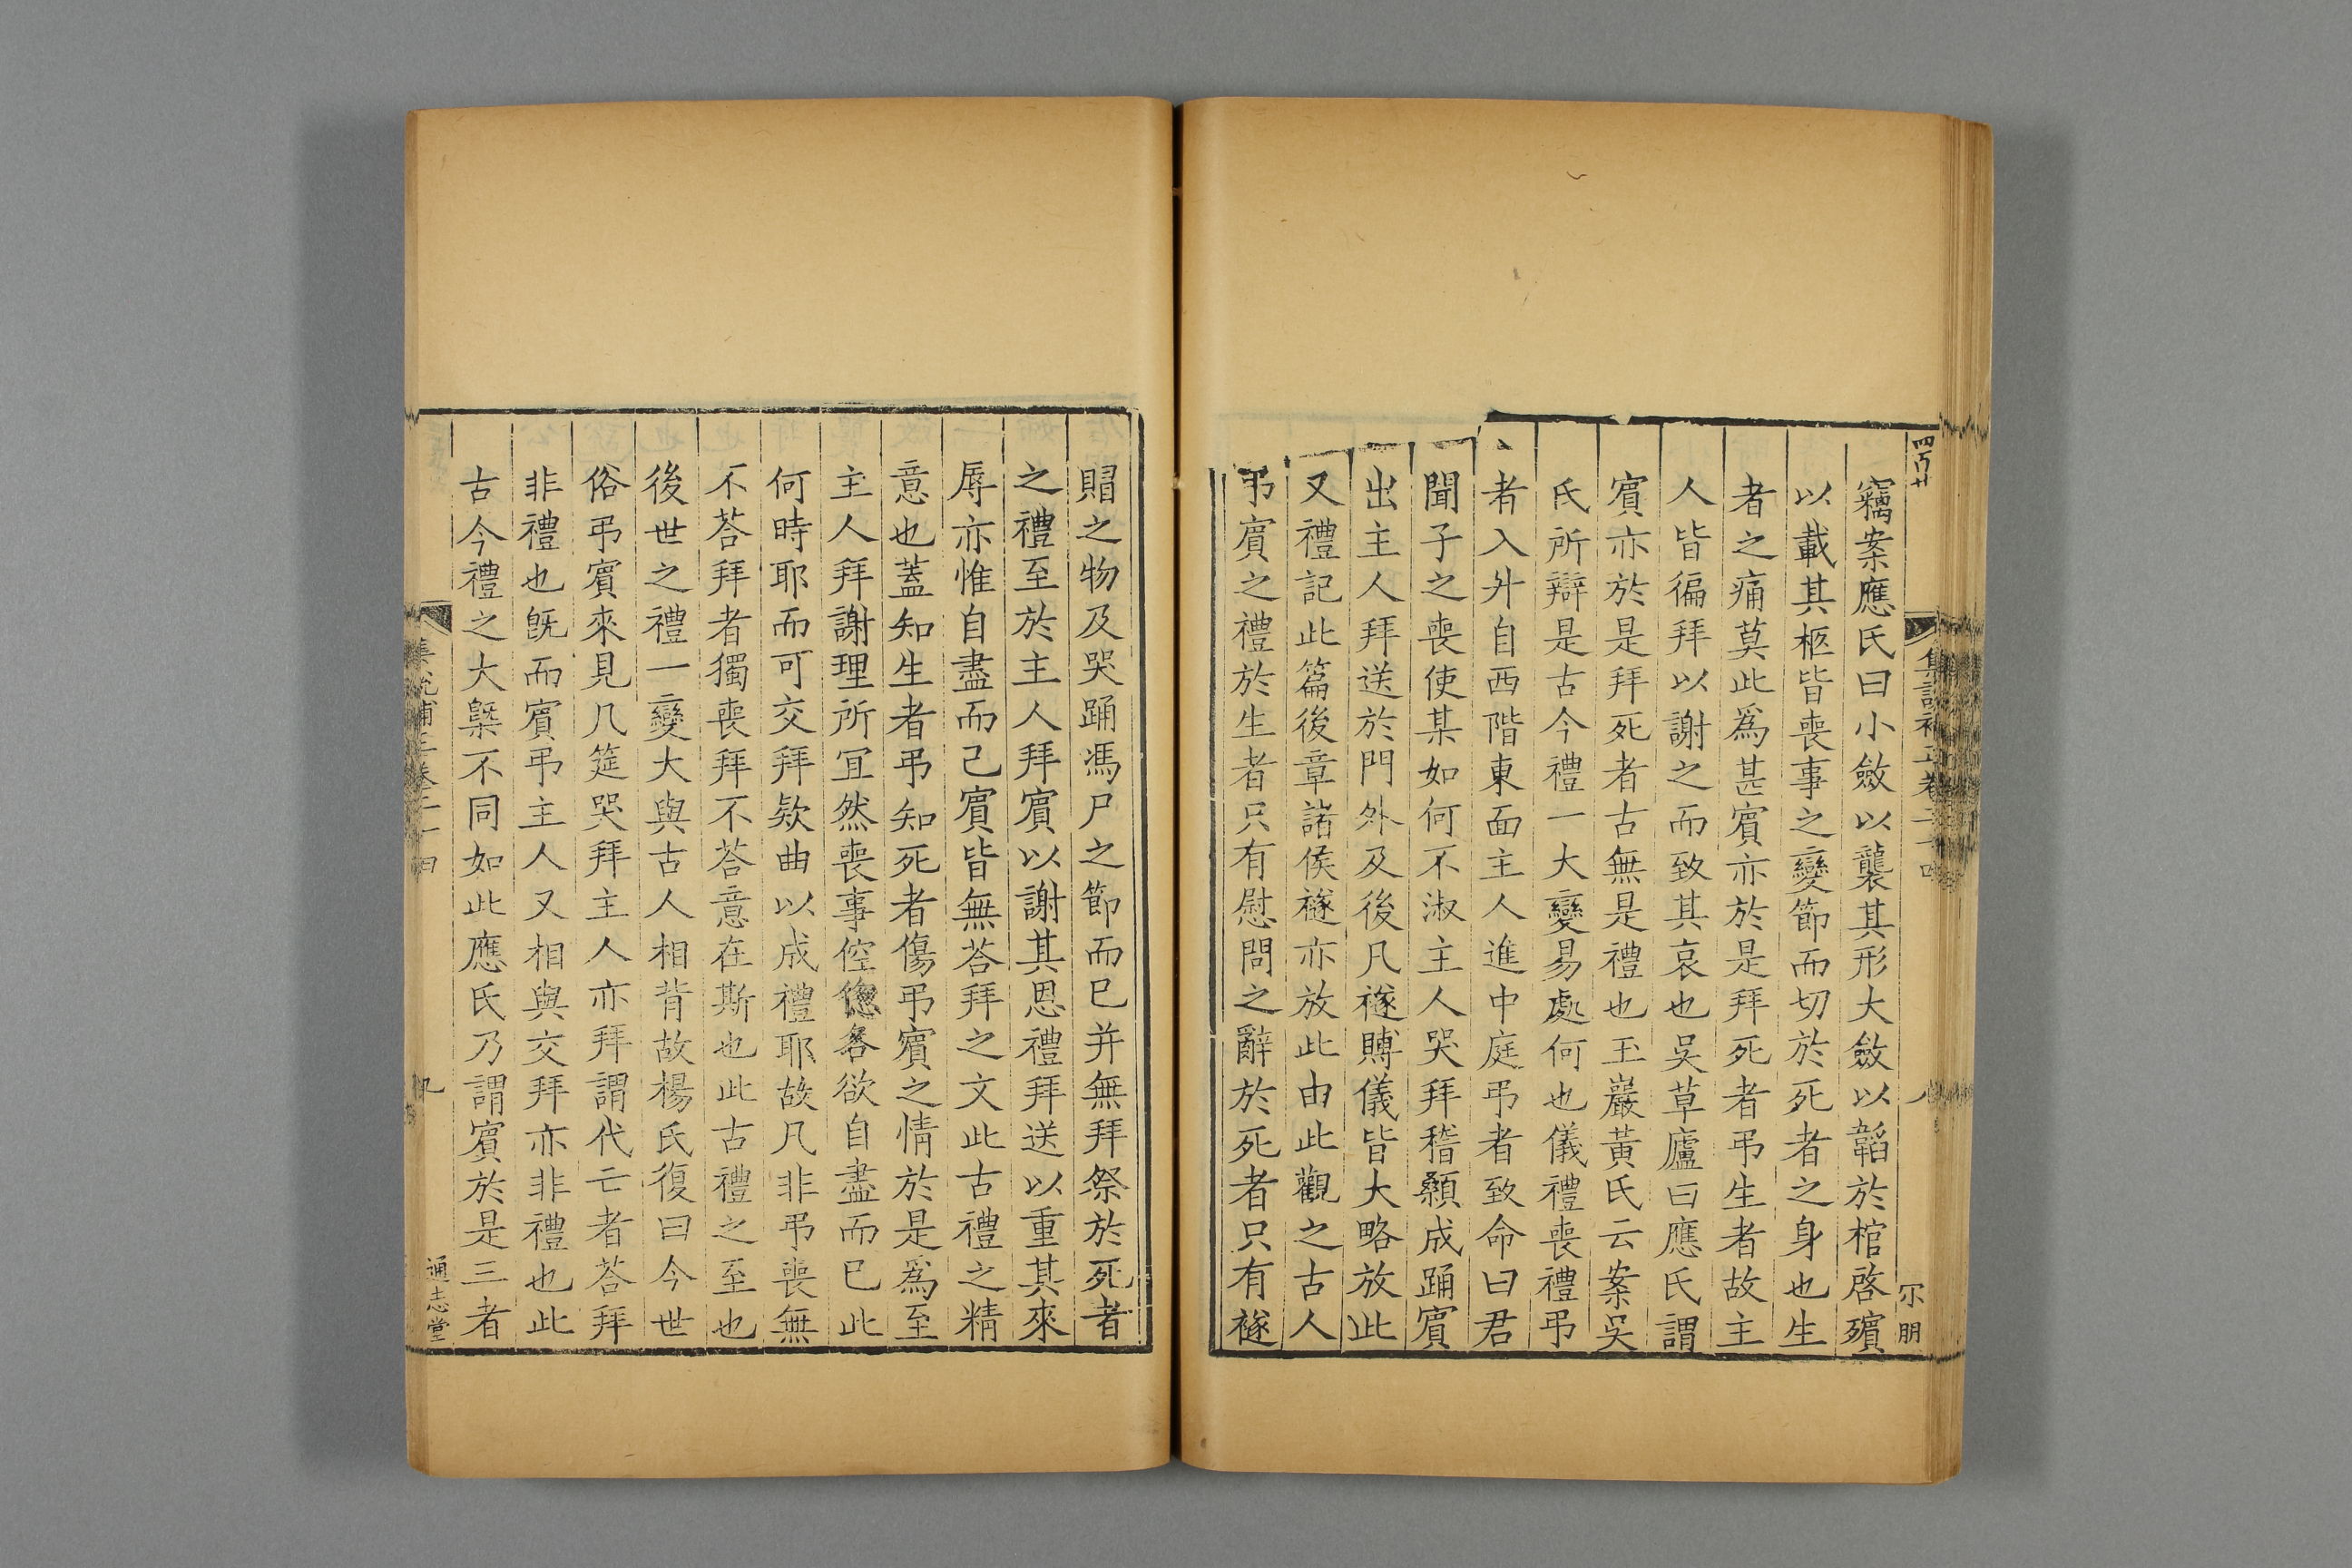 竊案應氏曰小斂以襲其形大斂以韜於棺啓殯
以載其柩皆喪事之變節而切於死者之身也生
者之痛莫此爲甚賔亦於是拜死者弔生者故主
人皆徧拜以謝之而致其哀也吳草廬曰應氏謂
賔亦於是拜死者古無是禮也玉巖黃氏云案吳
氏所辯是古今禮一大變易處何也儀禮喪禮弔
者入升自西階東面主人進中庭弔者致命曰君
聞子之喪使某如何不淑主人哭拜稽顙成踊賔
出主人拜送於門外及後凡襚賻儀皆大略放此
又禮記此篇後章諸侯襚亦放此由此觀之古人
弔賔之禮於生者只有慰問之辭於死者只有襚
賵之物及哭踊馮尸之節而巳并無拜祭於死者
之禮至於主人拜賔以謝其恩禮拜送以重其來
辱亦惟自盡而己賔皆無荅拜之文此古禮之精
意也蓋知生者弔知死者傷弔賔之情於是爲至
主人拜謝理所宜然喪事倥傯各欲自盡而巳此
何時耶而可交拜欵曲以成禮耶故凡非弔喪無
不荅拜者獨喪拜不荅意在斯也此古禮之至也
後世之禮一變大與古人相背故楊氏復曰今世
俗弔賔來見几筵哭拜主人亦拜謂代亡者荅拜
非禮也旣而賔弔主人又相與交拜亦非禮也此
古今禮之大槩不同如此應氏乃謂賔於是三者
通志堂